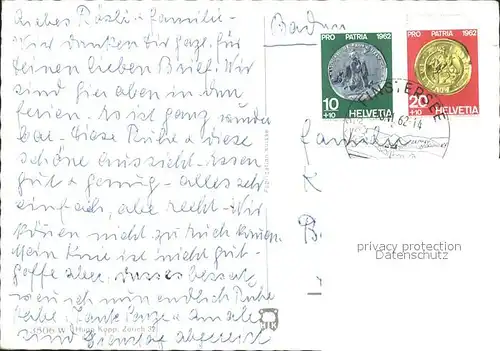 Liebes Rösli + Familie -
Viel danken dir ganz für
deinen lieben Brief. Wir
sind hier oben in den
Ferien. Es ist ganz wunder
bar. Diese Ruhe + diese
schöne Aussicht - Essen
gut + genug - alles sehr
einfach, aber recht - Wir
können nicht zu Euch kommen.
Mein Knie ist nicht gut -
hoffe aber, dass es bessert,
wenn ich nun endlich Ruhe
habe.
sind Dienstag abgereist
3506 W Hugo Kopp, Zürich 32
Baden
PRO PATRIA 1962
10
+10
HELVETIA
PRO PATRIA 1962
20
+10
HELVETIA
FINSTERSEE
62-14
Familie
K
B
privacy protection
Datenschutz